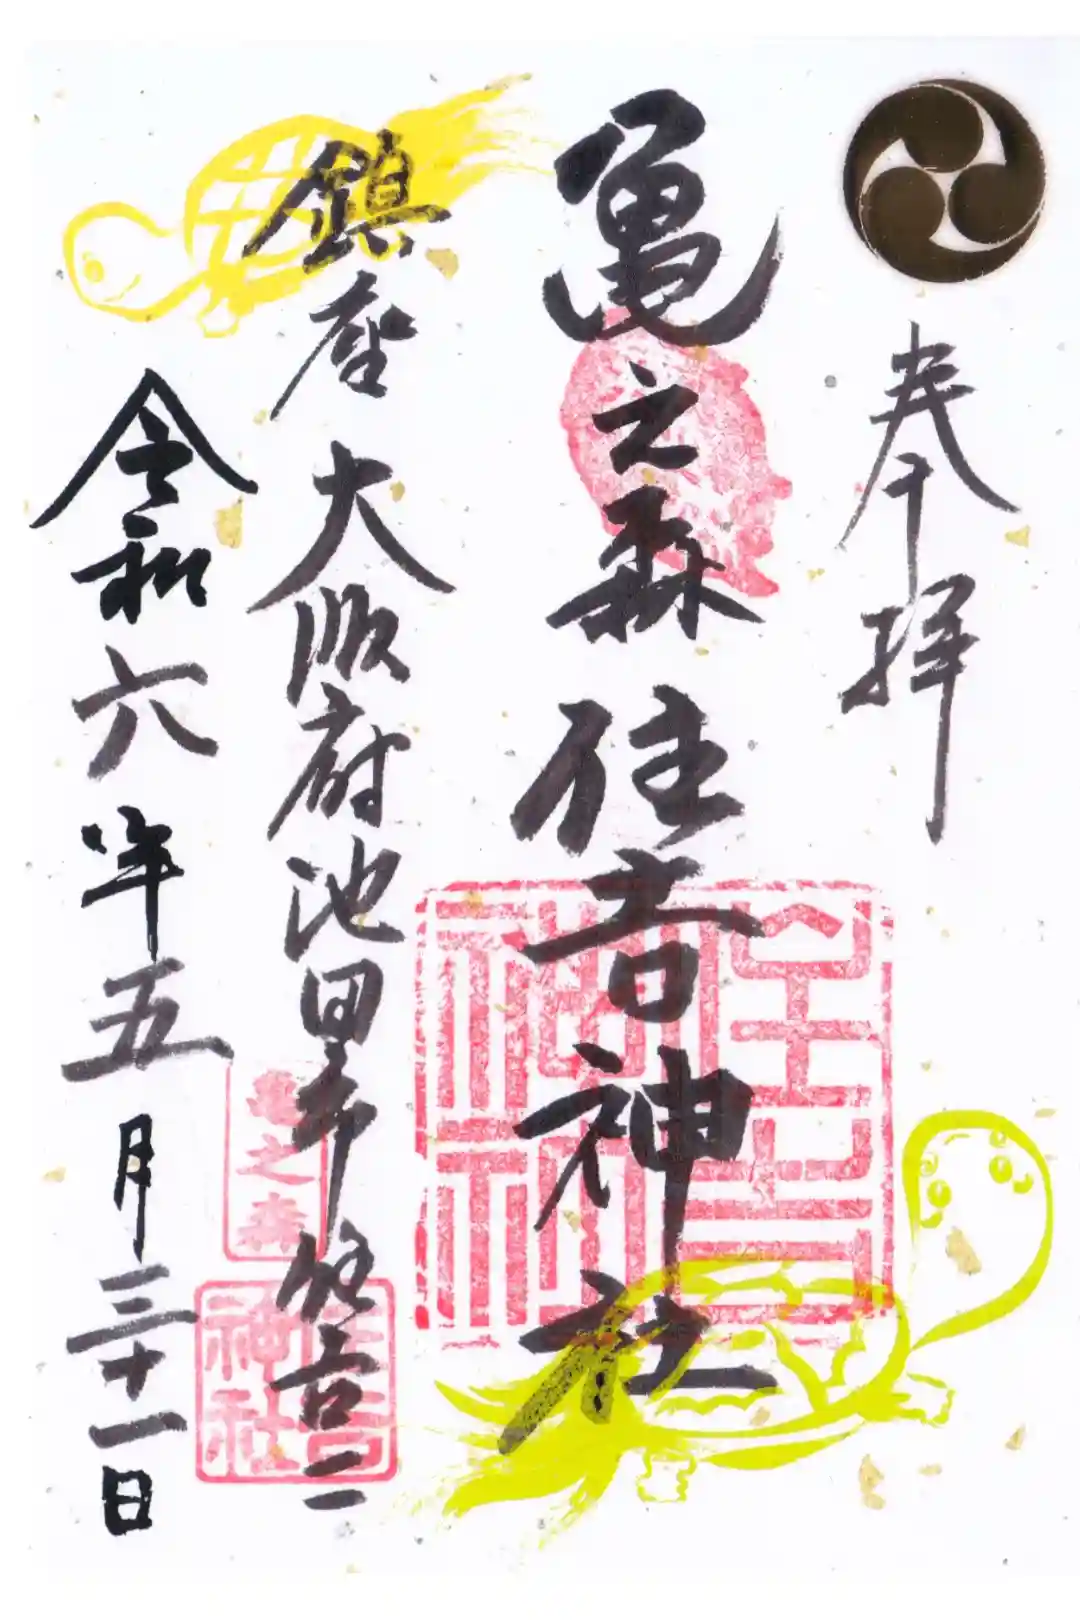 奉拝
亀之森住吉神社
鎮座 大阪府池田市住吉二
令和六年五月三十一日
住吉神社
亀之森
住吉神社